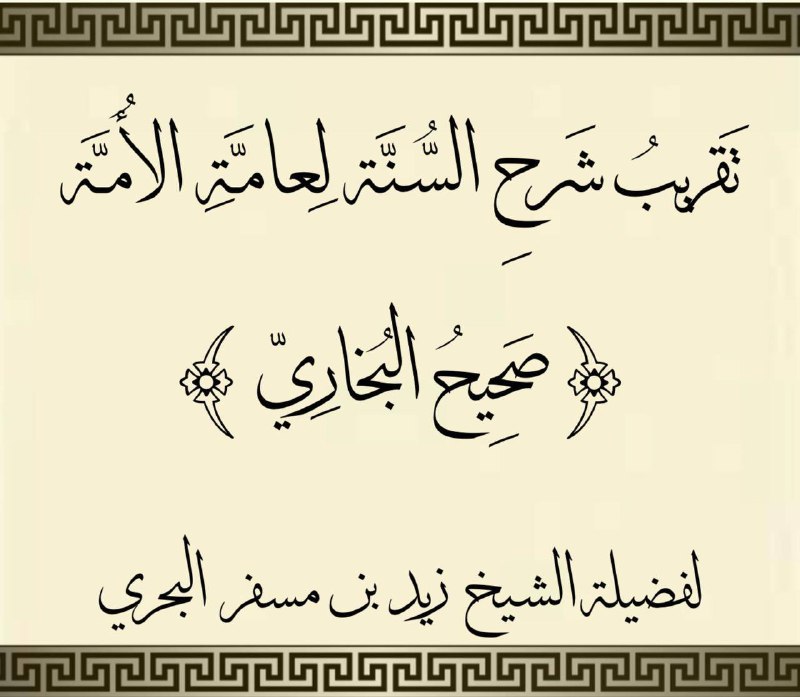 تَقريبُ شَرحِ السُّنَّة لِعامَّةِ الأُمَّة
﴿ صَحِيحُ البُخارِيّ ﴾
لفضيلة الشيخ زيد بن مسفر البحري